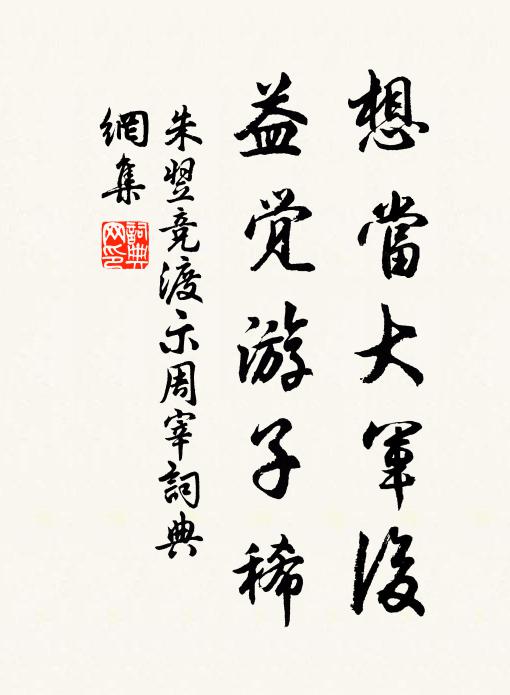 想當大軍後
益觉游子稀
朱翌竞渡示周宰詞典
網集
詞典网印